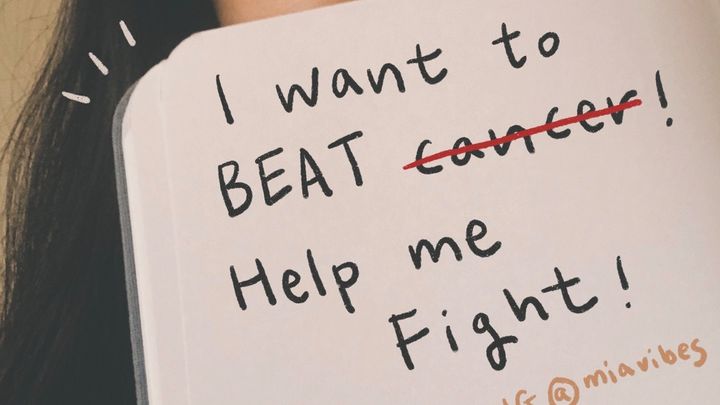 I want to
BEAT cancer!
Help me
Fight!
IG @miavibes